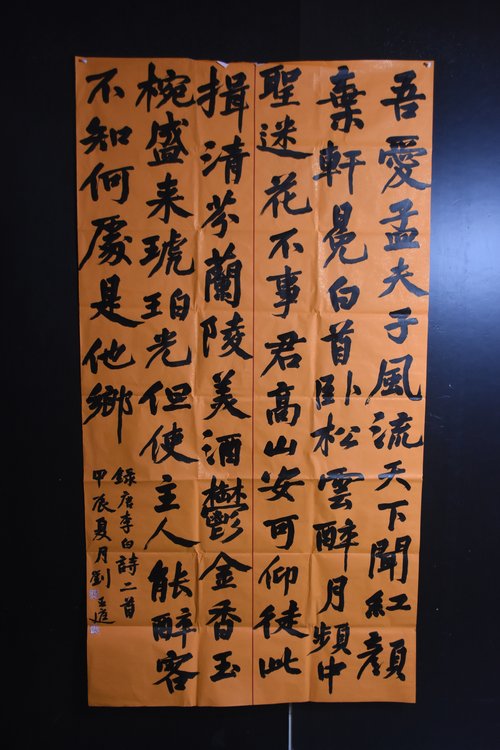 吾愛孟夫子風流天下聞紅顏
棄軒冕白首卧松雲醉月頻中
聖迷花不事君高山安可仰徒此
揖清芬蘭陵美酒鬱金香玉
椀盛来琥珀光但使主人能醉客
不知何處是他鄉
録唐李白詩二首
甲辰夏月劉